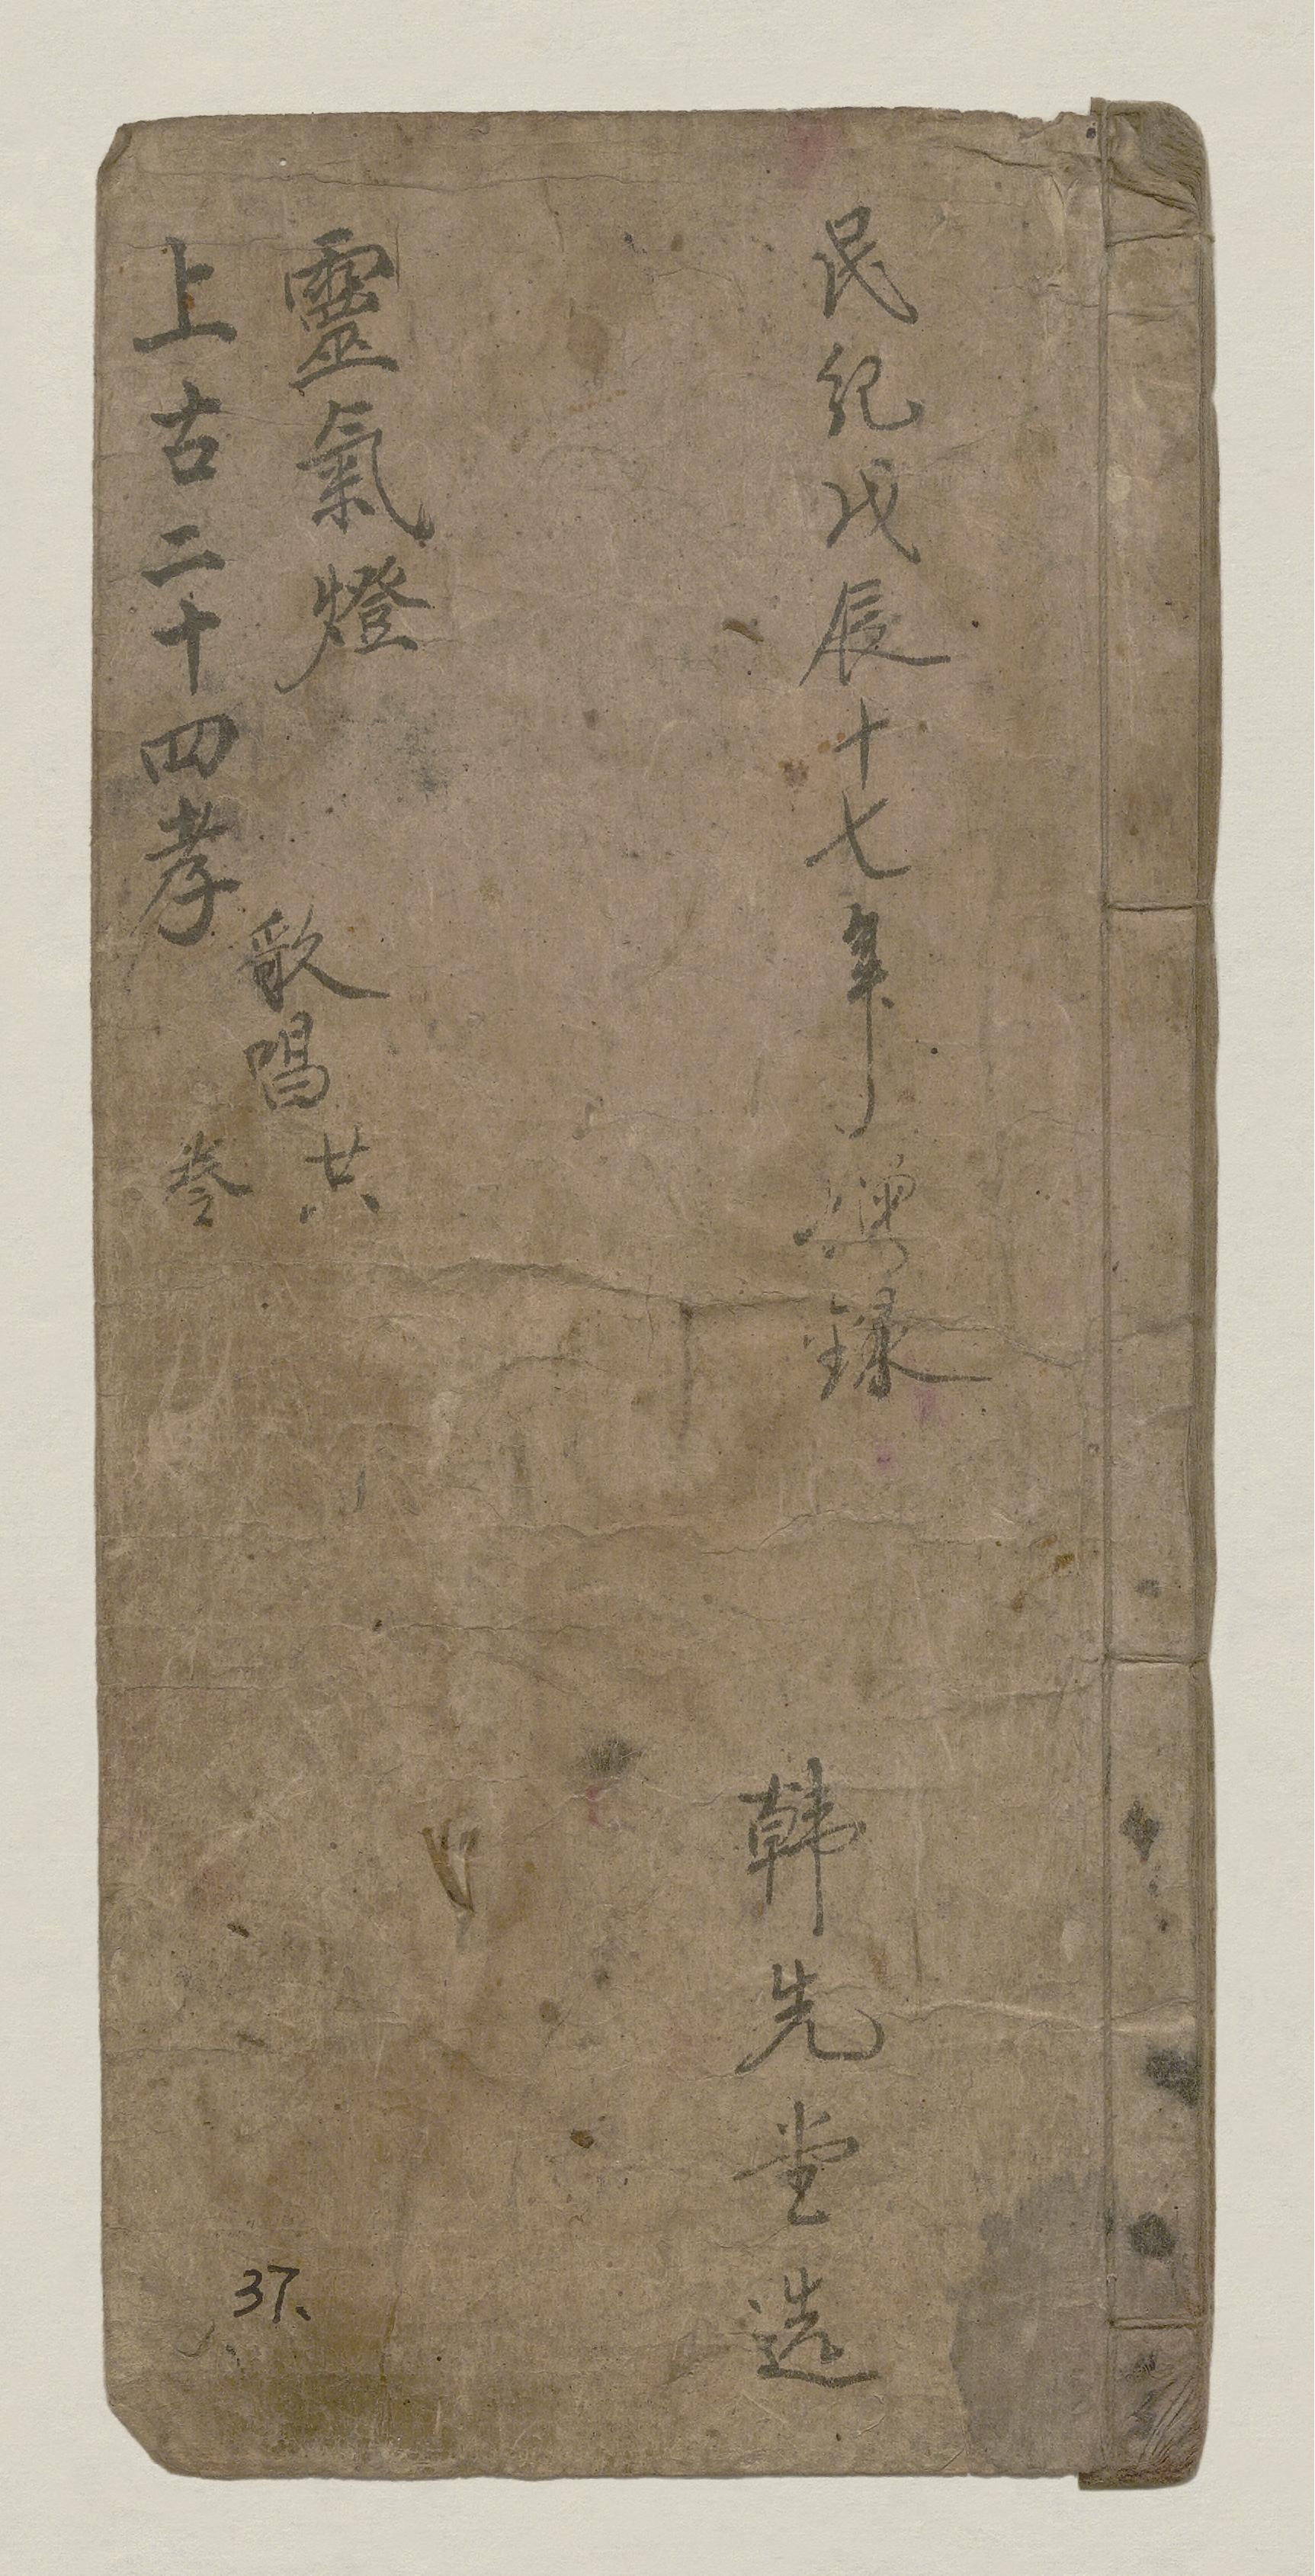 民紀戊辰十七年 録
韩先堂造
靈氣燈
上古二十四孝
歌唱共
叁
37、